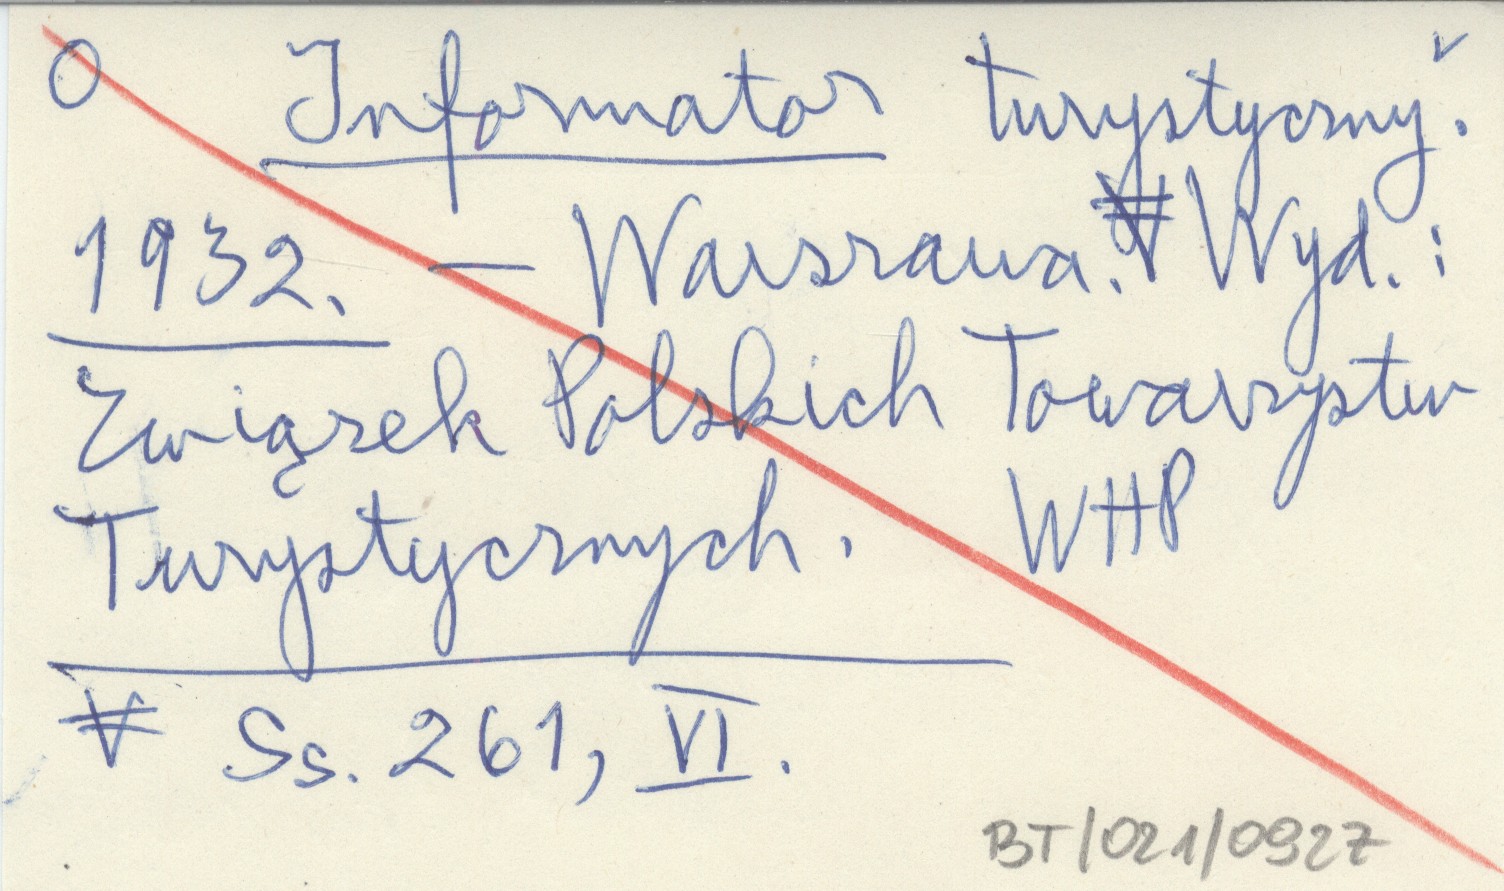 O Informator turystyczny.
1932. — Warszawa. Wyd.:
Związek Polskich Towarzystw
Turystycznych. WHP
Ss. 261, VI.
BT/021/0927